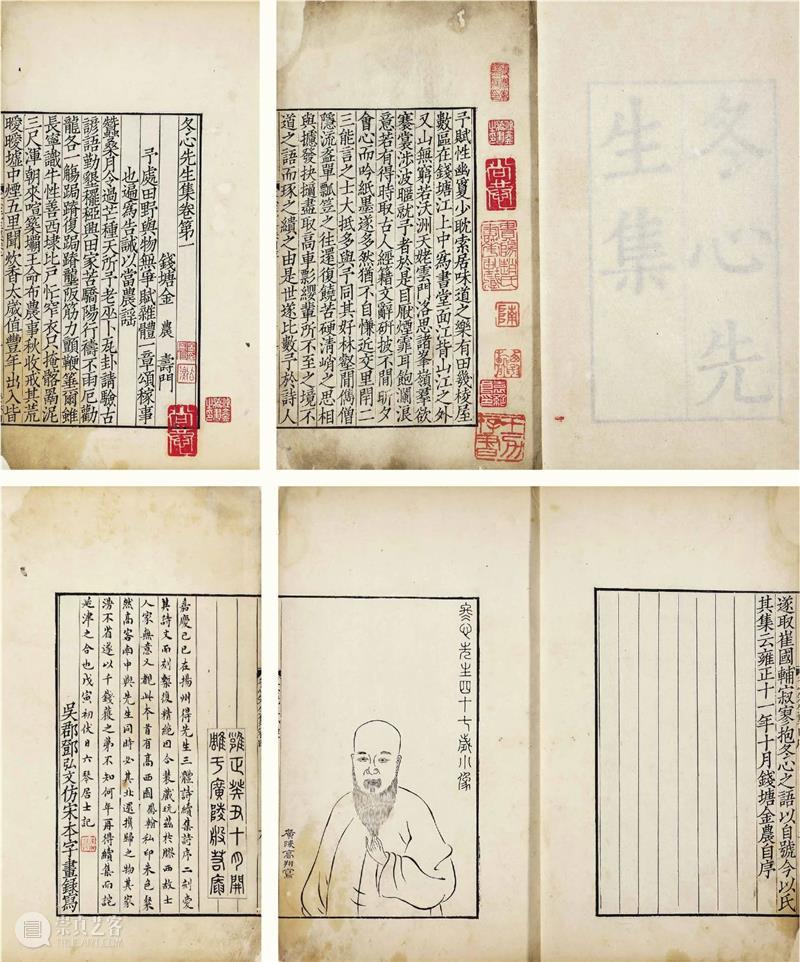 冬心先
生集
予賦性幽敻少耽索居味道之樂有田幾稜屋
數區在錢塘江上中為書堂面江皆山江之外
又山無窮若沃洲天姥雲門洛思諸峯嶺羣欲
褰裳涉波暱就予者於是目厭煙霏耳飽瀾浪
意若有得時取古人經籍文辭研披不閒昕夕
會心而吟紙墨遂多然猶不自慊近交里閈二
三能言之士大抵多與予同其好林壑閒儁僧
隱流盋單瓢笠之往還復饒苦硬清峭之思相
與攄發抉擿盡取高車影纓輩所不至之境不
道之語而琢之繢之由是世遂比數予於詩人
冬心先生集卷第一
錢塘金 農 壽門
予處田野與物無爭賦雜體一章頌稼事
也遍寫告誡以當農謠
蠶桑月令過芒種天所予老巫卜瓦卦請驗古
諺語勤墾穲稏與田家苦驕陽行禱不雨厄勸
龍各一觴跼蹐復跼蹐壟阪筋力顫鞭箠爾雖
長寧識牛性善西埭比戶忙窄衣只掩骼鬲泥
三尺渾朝來喧築壩王命布農事秋收戒其荒
曖曖墟中煙五里聞炊香太歲值豐年出入皆
遂取崔國輔寂寥抱冬心之語以自號今以氏
其集云雍正十一年十月錢塘金農自序
冬心先生四十七歲小像
廣陵高翔寫
雍正癸丑十月開
雕于廣陵般若庵
嘉慶己巳在揚州得先生三體詩續集詩序二刻愛
其詩文而刻槧復精絕因合裝藏玩茲於膠西故士
人家無意又覩此本首有高西園鳳翰私印朱色粲
然高客南中與先生同時必其北還攜歸之物其家
漫不省遂以千錢獲之第不知何年再得續集而詫
是津之合也戊寅初伏日六琴居士記
吳郡鄧弘文仿宋本字畫錄寫
崇真艺客